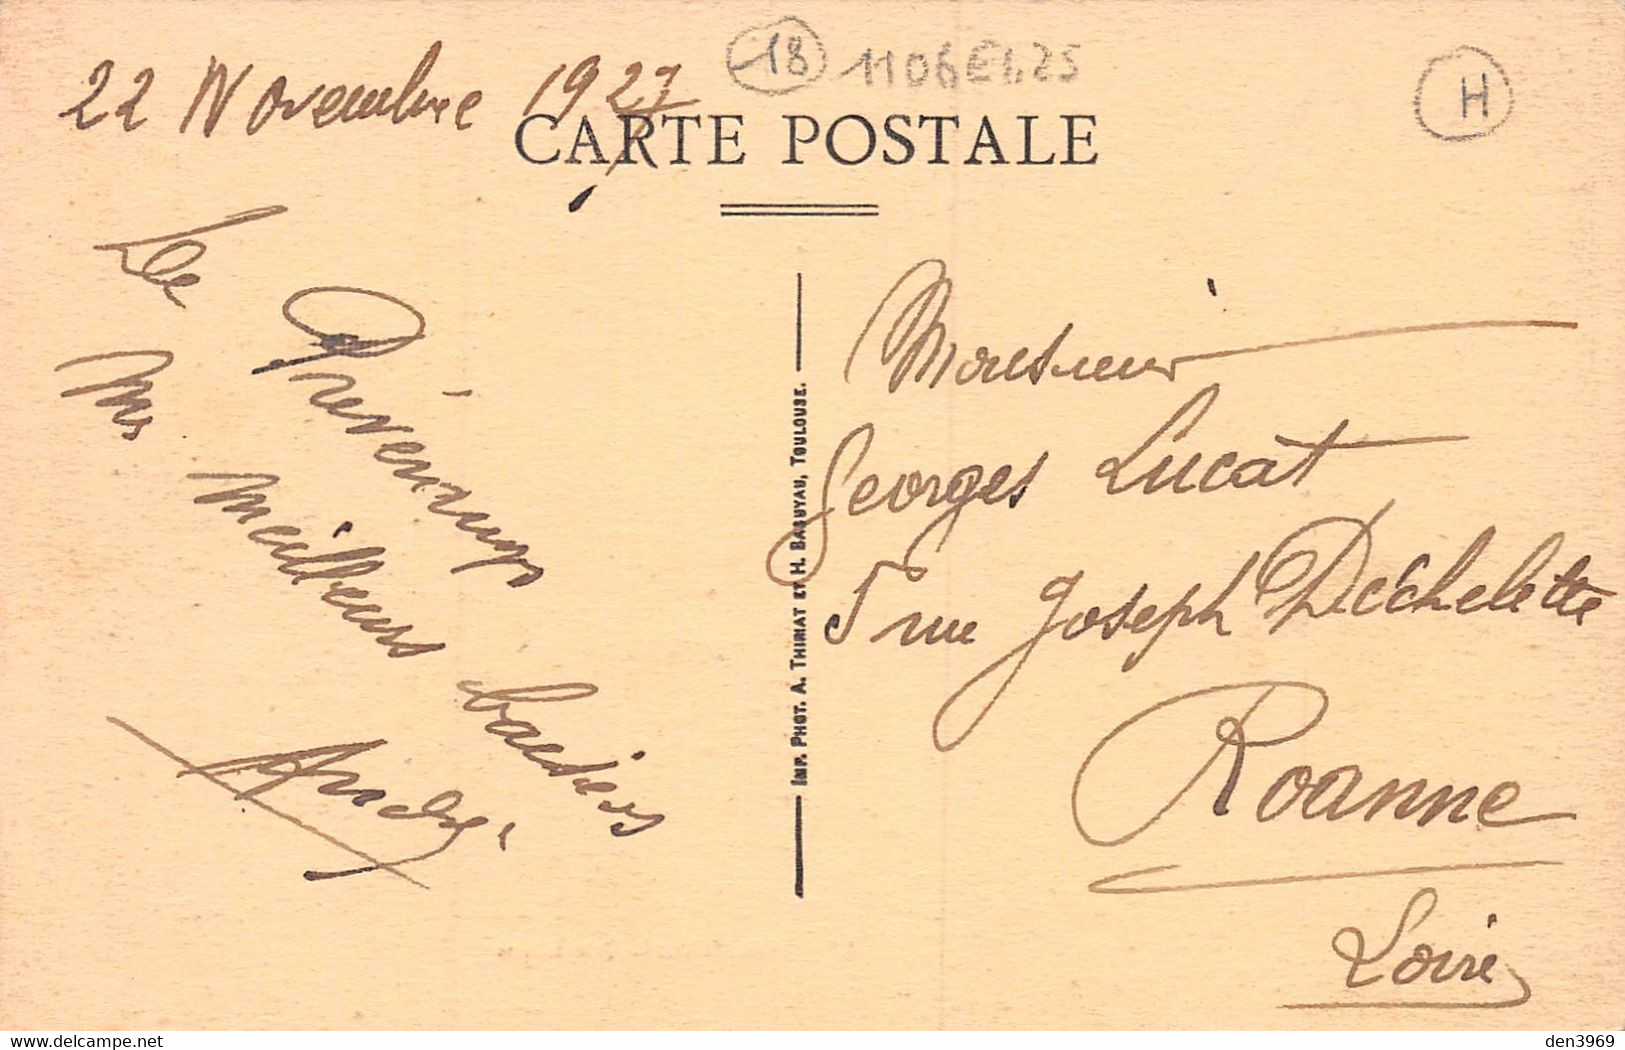 22 Novembre 1927
18 1106EL25
H
CARTE POSTALE
Le
Mes meilleurs baisers
André
IMP. PHOT. A. THIRIAT ET H. BASUYAU, TOULOUSE.
Monsieur
Georges Lucat
5 rue Joseph Déchelette
Roanne
Loire
delcampe.net
den3969